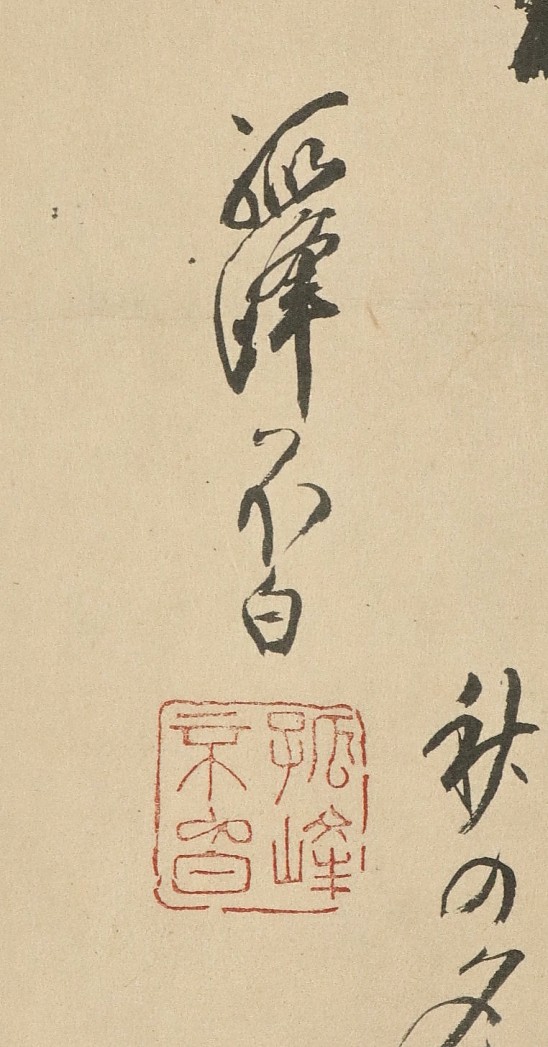 秋の夕
孤峰不白
孤峰
不白